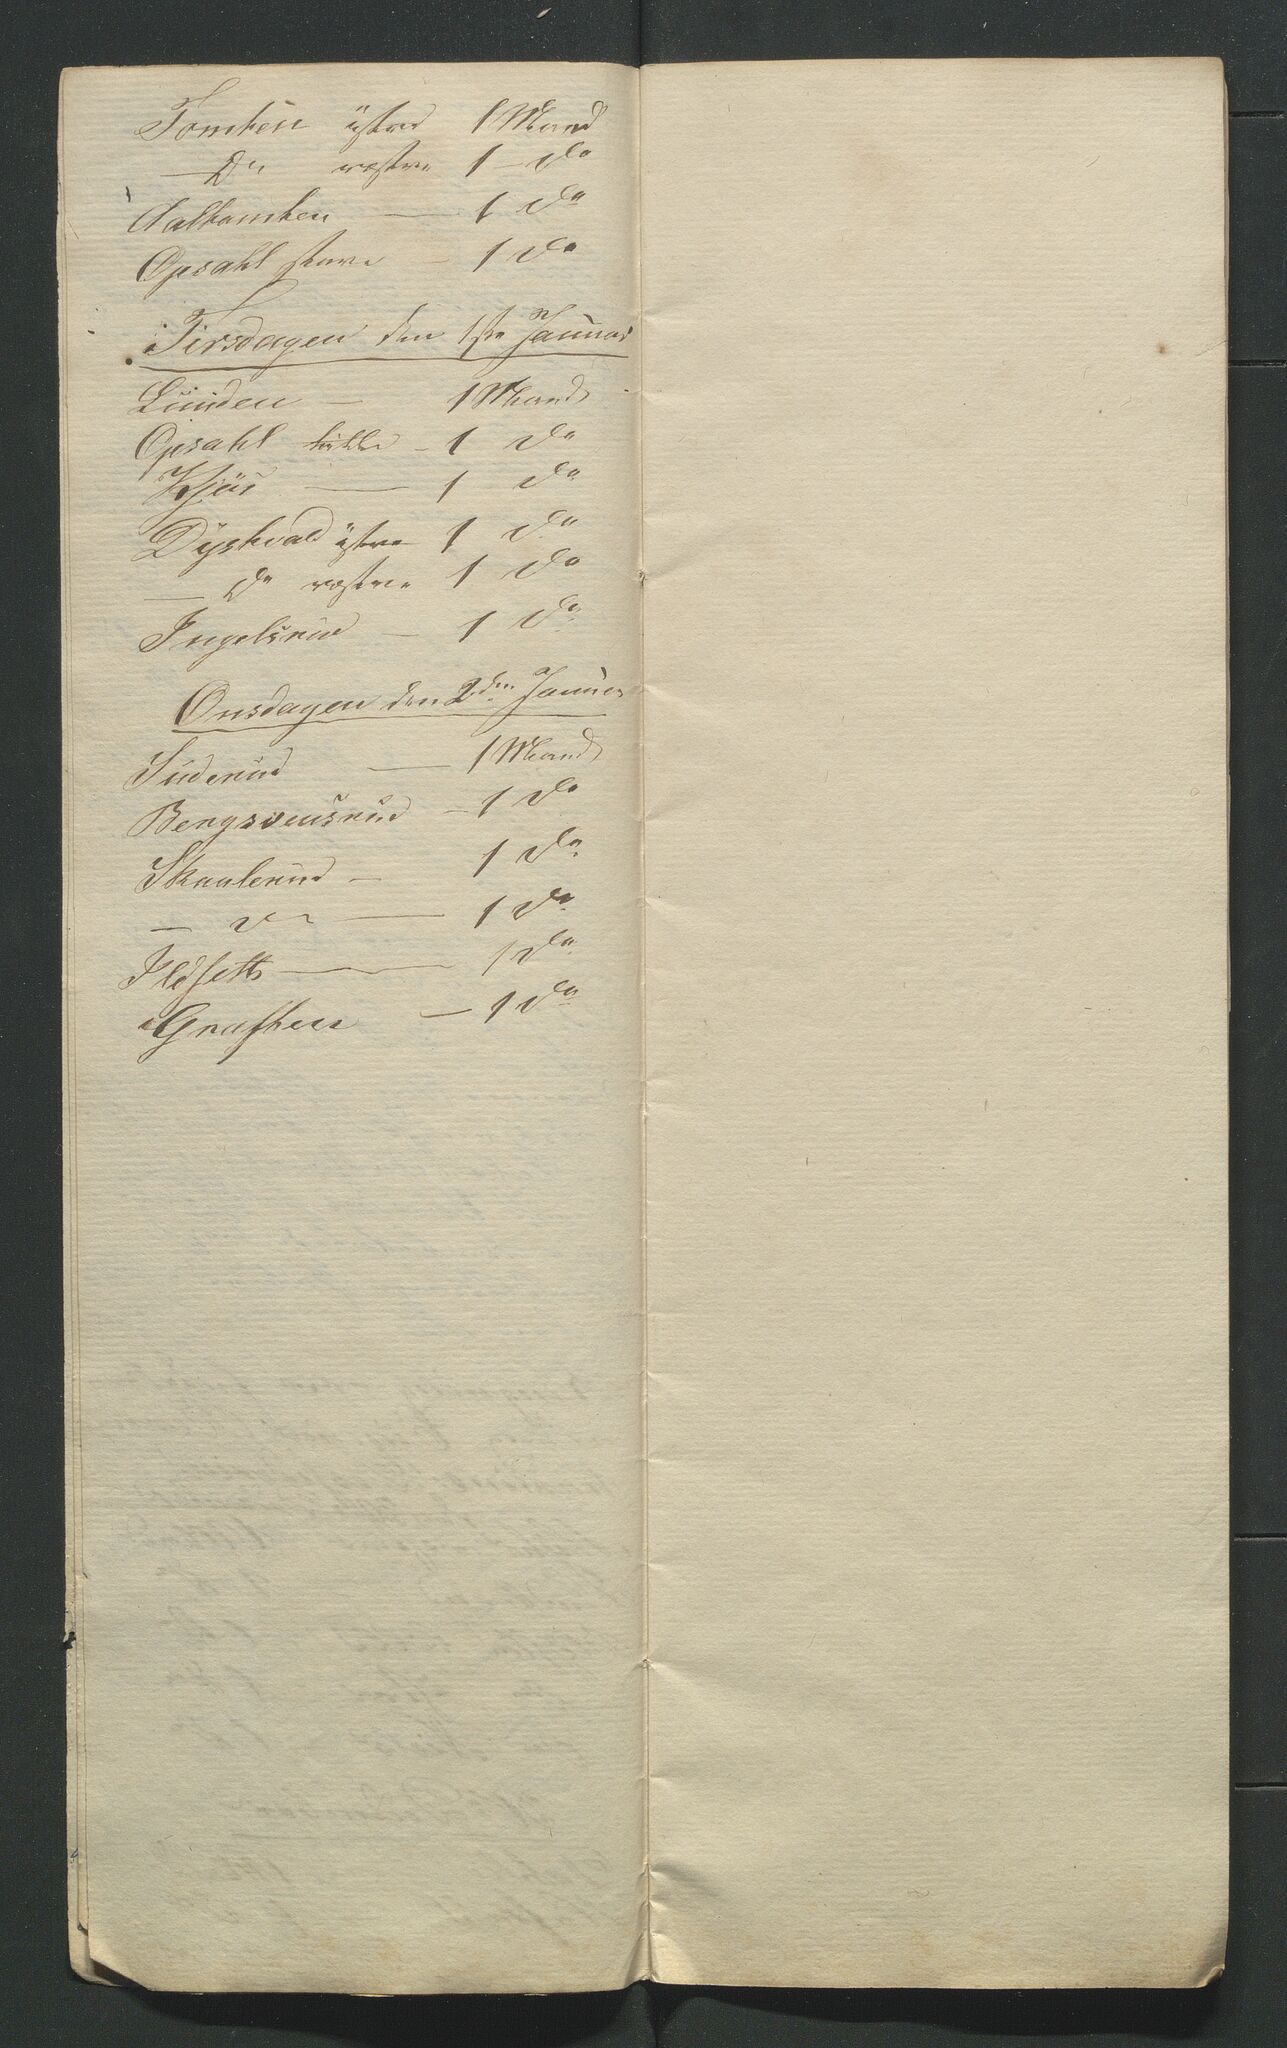 Tomten östre 1 Mand
— Do vestre 1 — do
Aaltomten — 1 do
Opsahl store — 1 do
Tirsdagen den 1ste Januar
Lunden — 1 Mand
Opsahl lille — 1 do
Kjös — 1 do
Dystvold östre 1 do
— do vestre 1 do
Ingelsrud — 1 do
Onsdagen den 2den Januar
Suderud — 1 Mand
Bergsvensrud — 1 do
Skaulerud — 1 do
— do — 1 do
Ildsett — 1 do
Graften — 1 do